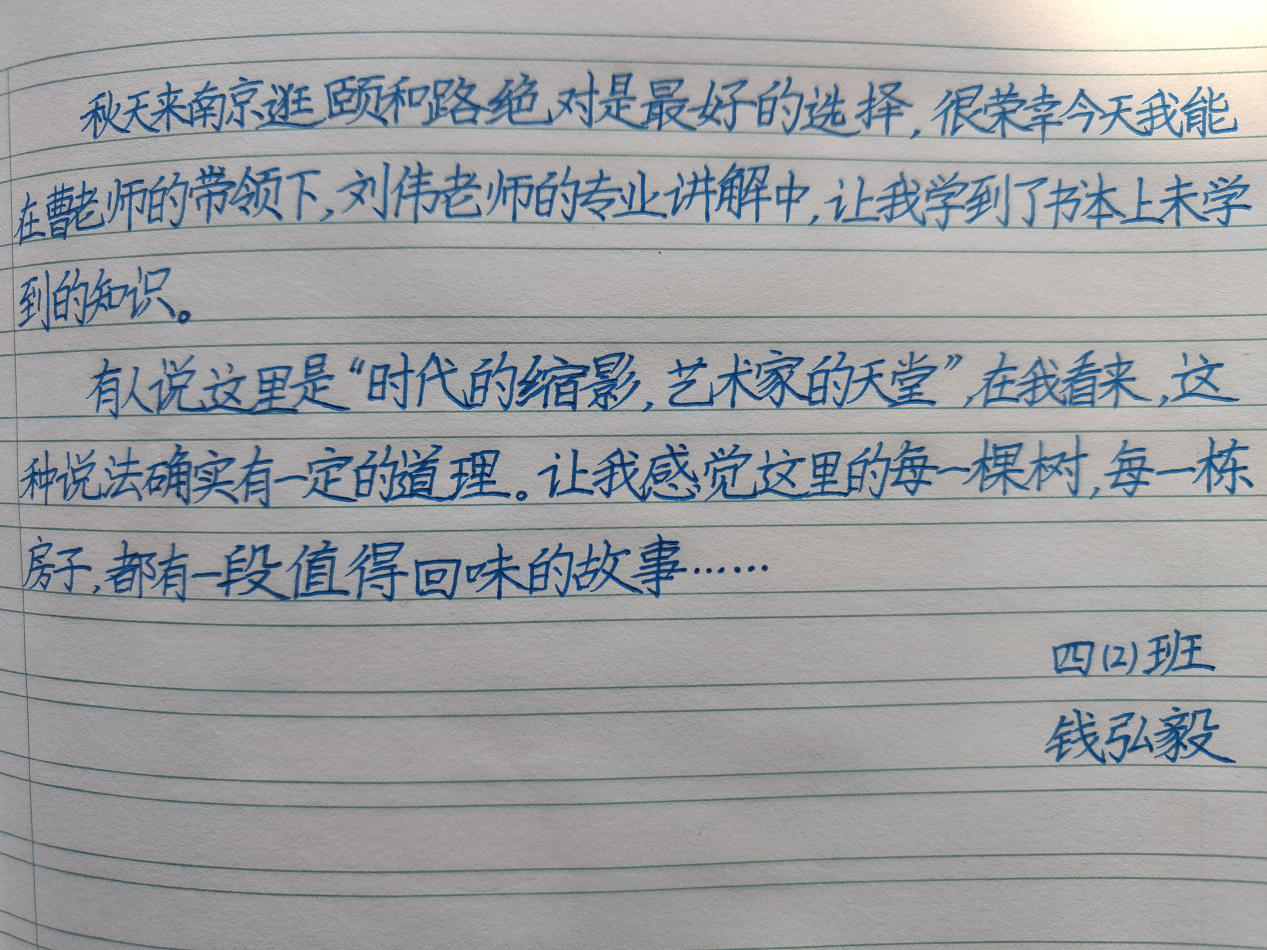 秋天来南京逛颐和路绝对是最好的选择，很荣幸今天我能
在曹老师的带领下，刘伟老师的专业讲解中，让我学到了书本上未学
到的知识。
有人说这里是“时代的缩影，艺术家的天堂”，在我看来，这
种说法确实有一定的道理。让我感觉这里的每一棵树，每一栋
房子，都有一段值得回味的故事……
四（2）班
钱弘毅